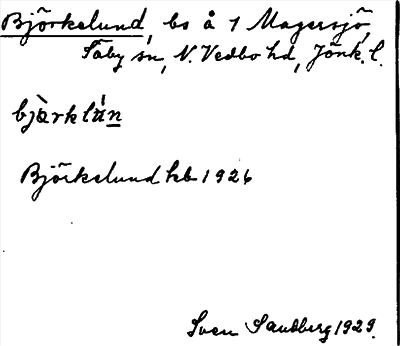 Björkelund, bs å 1 Magersjö,
Säby sn, N. Vedbo hd, Jönk. l.
bjàrklún
Björkelund hb 1926
Sven Sandberg 1929.